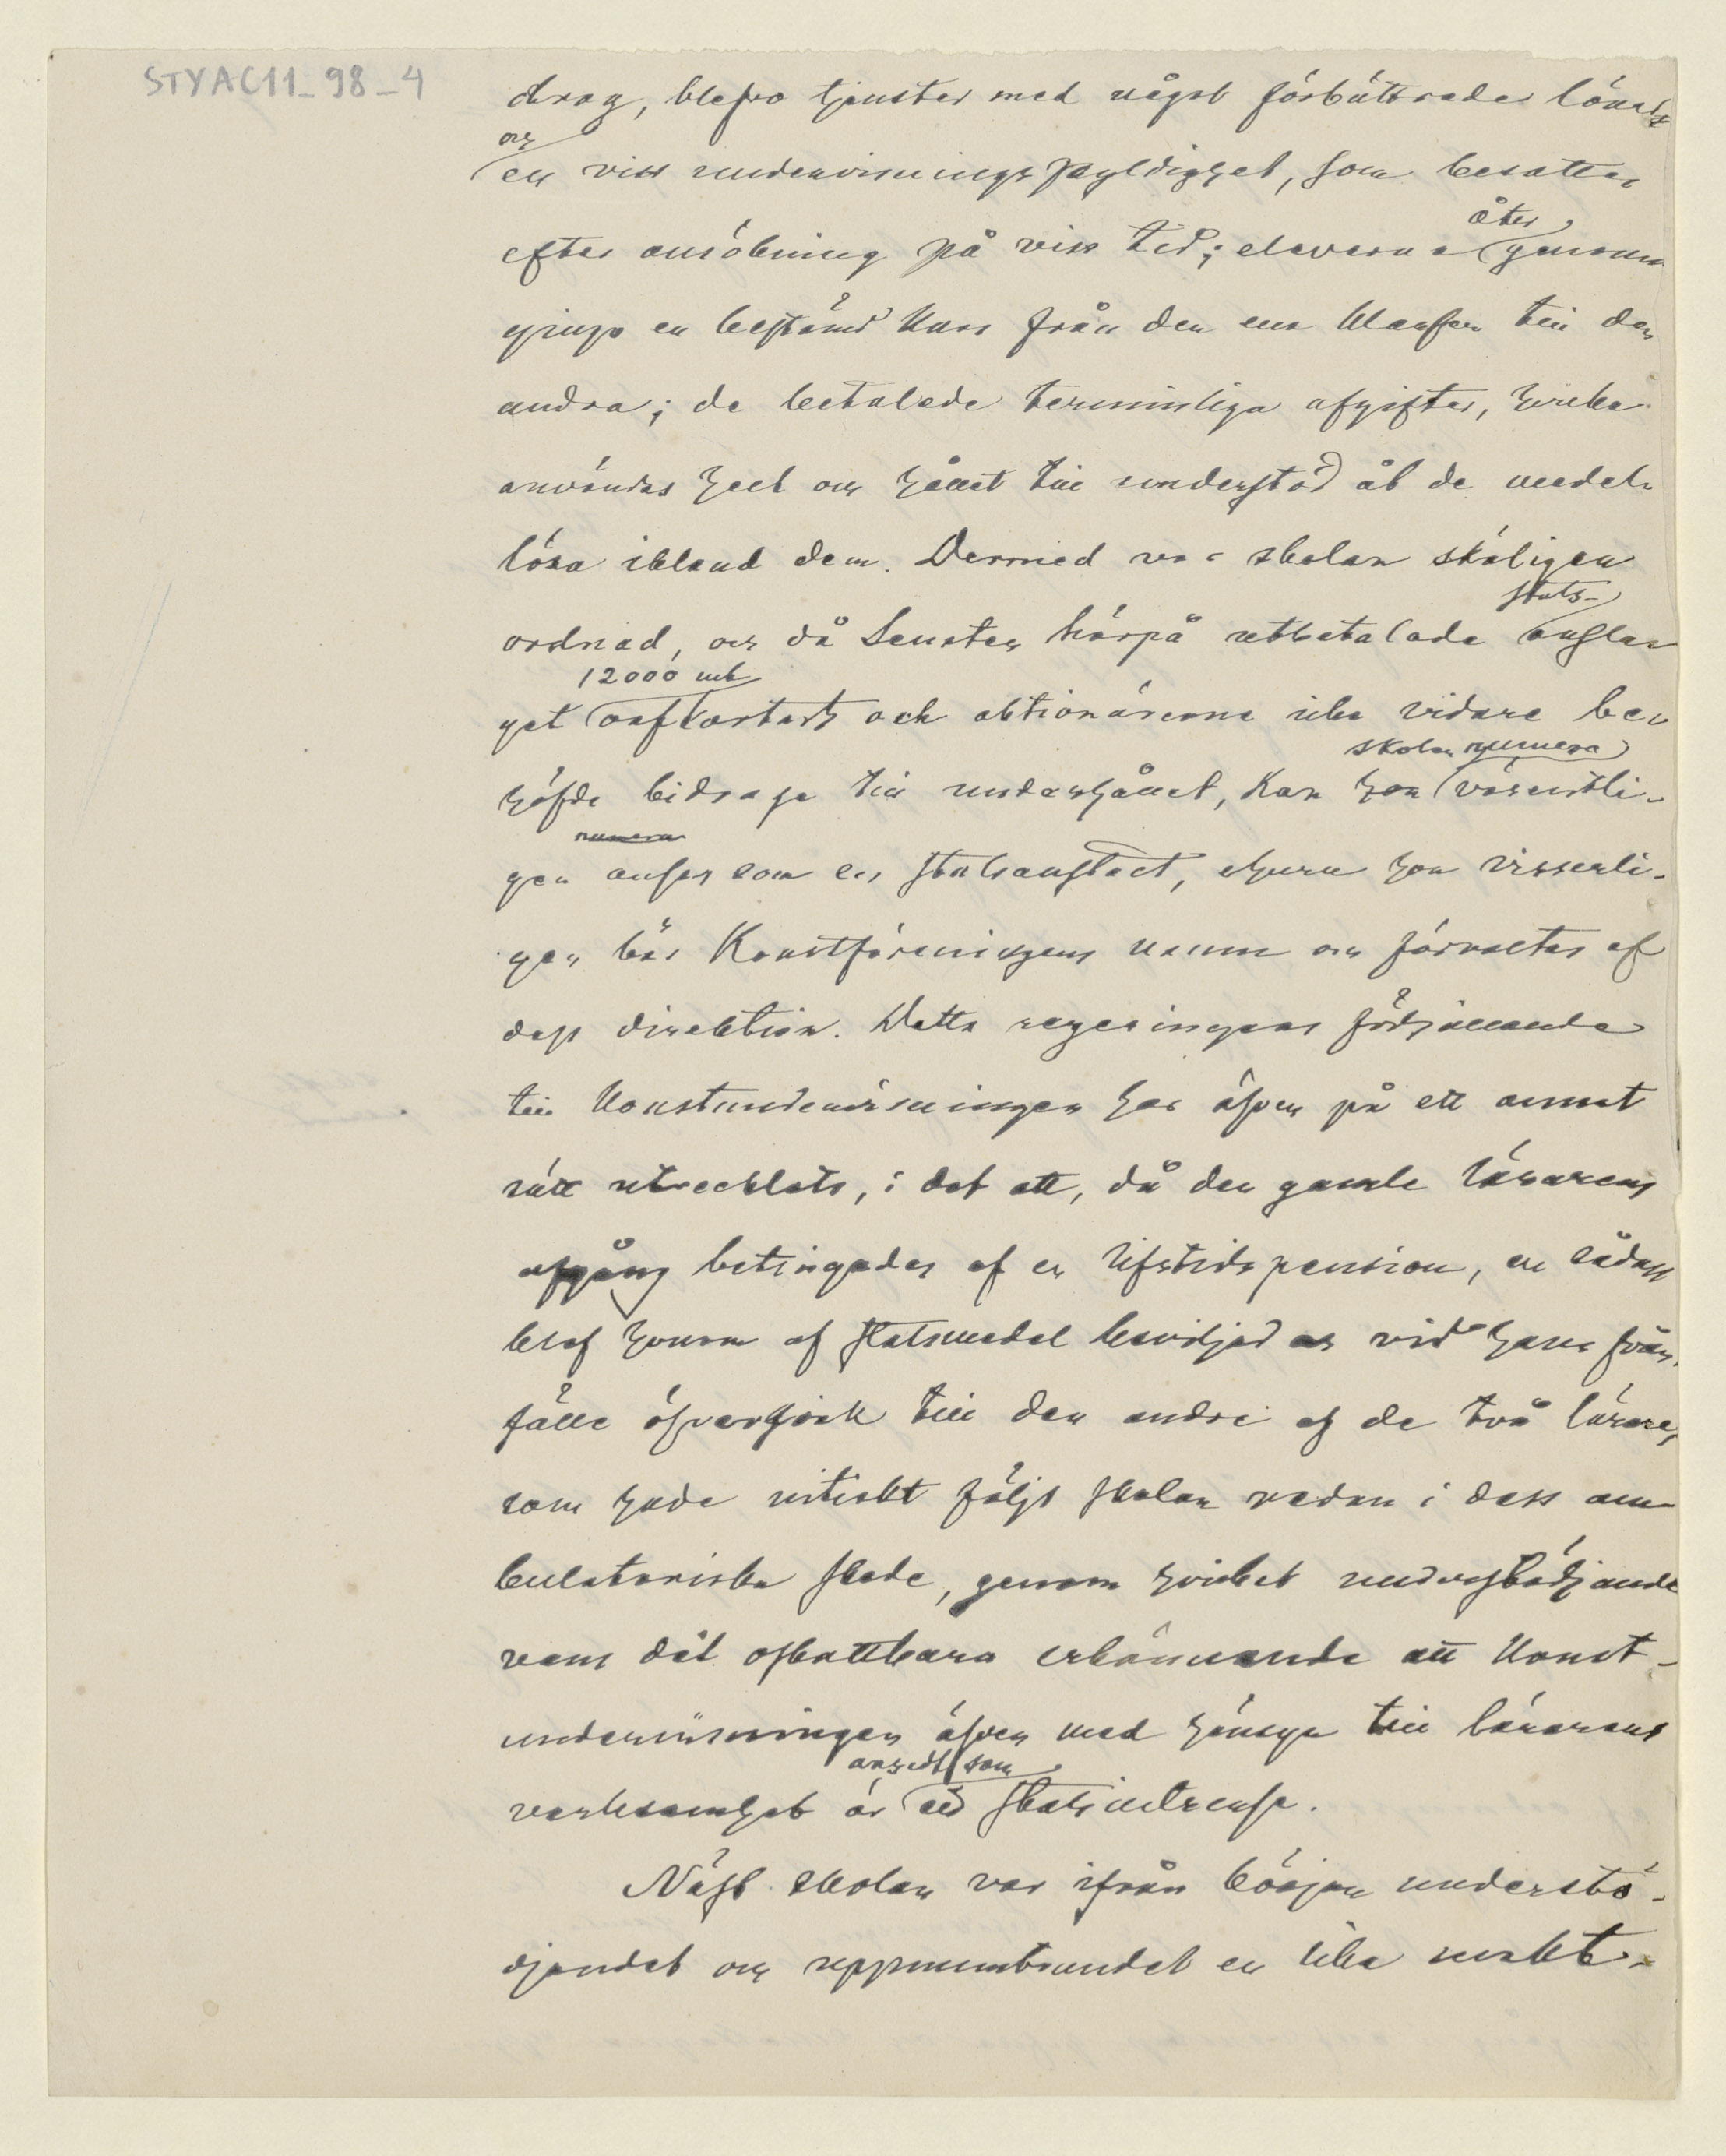 STYAC11_98_4
drag, blefvo tjenster med något förbättrade löner
och
en viss undervisningsskyldighet, som besattes
efter ansökning på viss tid; eleverna
åter
genom
gingo en bestämd kurs från den ena klassen till den
andra; de betalade terminliga afgifter, hvilka
användes helt och hållet till understöd åt de medel-
lösa ibland dem. Dermed var skolan skäligen
ordnad, och då Senaten härpå utbetalade
stats-
anslaget
12000 mk
och aktionärerna icke vidare be-
höfde bidraga till underhållet, kan
skolan numera
väsentli-
gen anses som en statsanstalt, ehuru hon visserli-
gen bär Konstföreningens namn och förvaltas af
dess direktion. Detta regeringens förhållande
till konstundervisningen har äfven på ett annat
sätt utvecklats, i det att, då den gamle lärarens
afgång betingades af en lifstidspension, en sådan
blef honom af statsmedel beviljad och vid hans från-
fälle öfvergick till den andre af de två lärare,
som hade nitiskt följt skolan redan i dess am-
bulatoriska skede, genom hvilket understödjande
vans det oskattbara erkännande att konst-
undervisningen äfven med hänsyn till lärarens
verksamhet är
ansedt som
ett statsintresse.
Näst skolan var ifrån början understö-
djandet och uppmuntrandet en lika maktt-